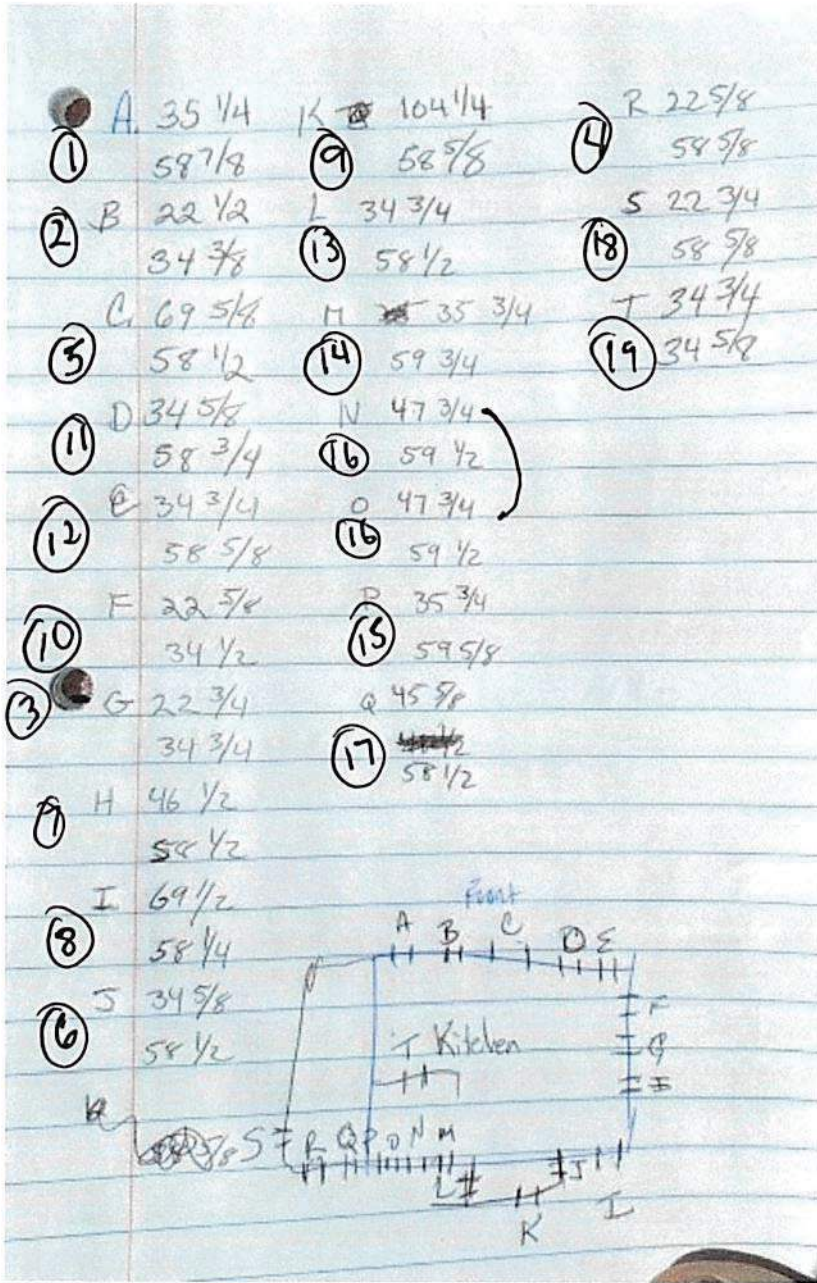 A. 35 1/4
① 58 7/8
B 22 1/2
② 34 3/8
C. 69 5/8
⑤ 58 1/2
D 34 5/8
⑪ 58 3/4
E 34 3/4
⑫ 58 5/8
F 22 5/8
⑩ 34 1/2
③ G 22 3/4
34 3/4
H 46 1/2
58 1/2
I 69 1/2
⑧ 58 1/4
J 34 5/8
⑥ 58 1/2
K 104 1/4
⑨ 58 5/8
L 34 3/4
⑬ 58 1/2
M 35 3/4
⑭ 59 3/4
N 47 3/4
⑯ 59 1/2
O 47 3/4
⑯ 59 1/2
P 35 3/4
⑮ 59 5/8
Q 45 5/8
⑰
58 1/2
R 22 5/8
④ 58 5/8
S 22 3/4
⑱ 58 5/8
T 34 3/4
⑲ 34 5/8
Front
A B C D E
F
G
T Kitchen
S R Q P O N M
L J
K I